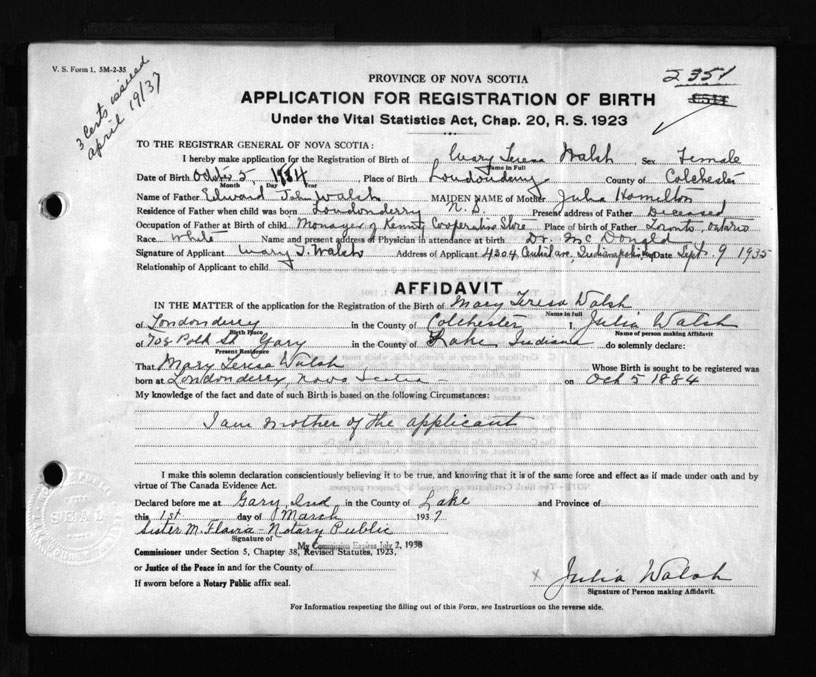 V. S. Form 1, 5M-2-35
3 Certs issued
april 19/37
2351
PROVINCE OF NOVA SCOTIA
APPLICATION FOR REGISTRATION OF BIRTH
Under the Vital Statistics Act, Chap. 20, R. S. 1923
TO THE REGISTRAR GENERAL OF NOVA SCOTIA:
I hereby make application for the Registration of Birth of Mary Teresa Walsh Sex Female
Name in Full
Date of Birth October 5 1884, Place of Birth Londonderry County of Colchester
Month Day Year
Name of Father Edward John Walsh MAIDEN NAME of Mother Julia Hamilton
Residence of Father when child was born Londonderry N.S. Present address of Father Deceased
Occupation of Father at Birth of child Manager of Cooperative Store Place of birth of Father Toronto, Ontario
Race White Name and present address of Physician in attendance at birth Dr. McDonald
Signature of Applicant Mary T. Walsh Address of Applicant 4304 Central ave, Indianapolis, Date Sept. 9 1935
Relationship of Applicant to child
AFFIDAVIT
IN THE MATTER of the application for the Registration of the Birth of Mary Teresa Walsh
Name in full
of Londonderry in the County of Colchester I, Julia Walsh
Birth Place Name of person making Affidavit
of 708 Polk St Gary in the County of Lake Indiana do solemnly declare:
Present Residence
That Mary Teresa Walsh Whose Birth is sought to be registered was
born at Londonderry, Nova Scotia - on Oct 5 1884
My knowledge of the fact and date of such Birth is based on the following Circumstances:
I am mother of the applicant
I make this solemn declaration conscientiously believing it to be true, and knowing that it is of the same force and effect as if made under oath and by
virtue of The Canada Evidence Act.
Declared before me at Gary, Ind in the County of Lake and Province of
this 1st day of March 1937
Sister M. Flavia - Notary Public
Signature of My Commission Expires July 2, 1938
Commissioner under Section 5, Chapter 38, Revised Statutes, 1923,
or Justice of the Peace in and for the County of
If sworn before a Notary Public affix seal.
x Julia Walsh
Signature of Person making Affidavit.
For Information respecting the filling out of this Form, see Instructions on the reverse side.